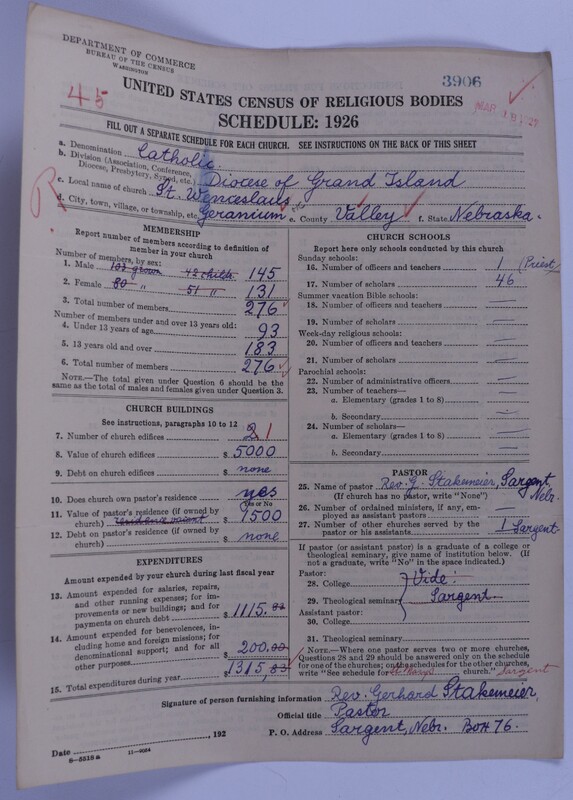 DEPARTMENT OF COMMERCE
BUREAU OF THE CENSUS
WASHINGTON
3906
45
MAR 18 1927
UNITED STATES CENSUS OF RELIGIOUS BODIES
SCHEDULE: 1926
FILL OUT A SEPARATE SCHEDULE FOR EACH CHURCH. SEE INSTRUCTIONS ON THE BACK OF THIS SHEET
a. Denomination Catholic.
b. Division (Association, Conference, Diocese, Presbytery, Synod, etc.) Diocese of Grand Island
c. Local name of church St. Wenceslaus
d. City, town, village, or township, etc. Geranium e. County Valley f. State Nebraska.
R
MEMBERSHIP
Report number of members according to definition of member in your church
Number of members, by sex:
1. Male 103 grown 42 childr. 145
2. Female 80 " 51 " 131
3. Total number of members 276
Number of members under and over 13 years old:
4. Under 13 years of age 93
5. 13 years old and over 183
6. Total number of members 276
NOTE.—The total given under Question 6 should be the same as the total of males and females given under Question 3.
CHURCH BUILDINGS
See instructions, paragraphs 10 to 12
7. Number of church edifices 2 1
8. Value of church edifices $ 5000
9. Debt on church edifices $ none
10. Does church own pastor's residence yes
Yes or No
11. Value of pastor's residence (if owned by church) residence vacant $ 1500
12. Debt on pastor's residence (if owned by church) $ none
EXPENDITURES
Amount expended by your church during last fiscal year
13. Amount expended for salaries, repairs, and other running expenses; for improvements or new buildings; and for payments on church debt $ 1115.83
14. Amount expended for benevolences, including home and foreign missions; for denominational support; and for all other purposes $ 200.00
15. Total expenditures during year $ 1315,83
CHURCH SCHOOLS
Report here only schools conducted by this church
Sunday schools:
16. Number of officers and teachers 1 (Priest)
17. Number of scholars 46
Summer vacation Bible schools:
18. Number of officers and teachers —
19. Number of scholars —
Week-day religious schools:
20. Number of officers and teachers —
21. Number of scholars —
Parochial schools:
22. Number of administrative officers —
23. Number of teachers—
a. Elementary (grades 1 to 8) —
b. Secondary —
24. Number of scholars—
a. Elementary (grades 1 to 8) —
b. Secondary —
PASTOR
25. Name of pastor Rev. G. Stakemeier, Sargent, Nebr.
(If church has no pastor, write "None")
26. Number of ordained ministers, if any, employed as assistant pastors —
27. Number of other churches served by the pastor or his assistants 1 Sargent.
If pastor (or assistant pastor) is a graduate of a college or theological seminary, give name of institution below. (If not a graduate, write "No" in the space indicated.)
Pastor:
28. College Vide:
29. Theological seminary Sargent
Assistant pastor:
30. College
31. Theological seminary
NOTE.—Where one pastor serves two or more churches, Questions 28 and 29 should be answered only on the schedule for one of the churches; on the schedules for the other churches, write "See schedule for St Mary's church." Sargent
Signature of person furnishing information Rev. Gerhard Stakemeier,
Official title Pastor
Date , 192 P. O. Address Sargent, Nebr. Box 76.
8-5518a 11-9064